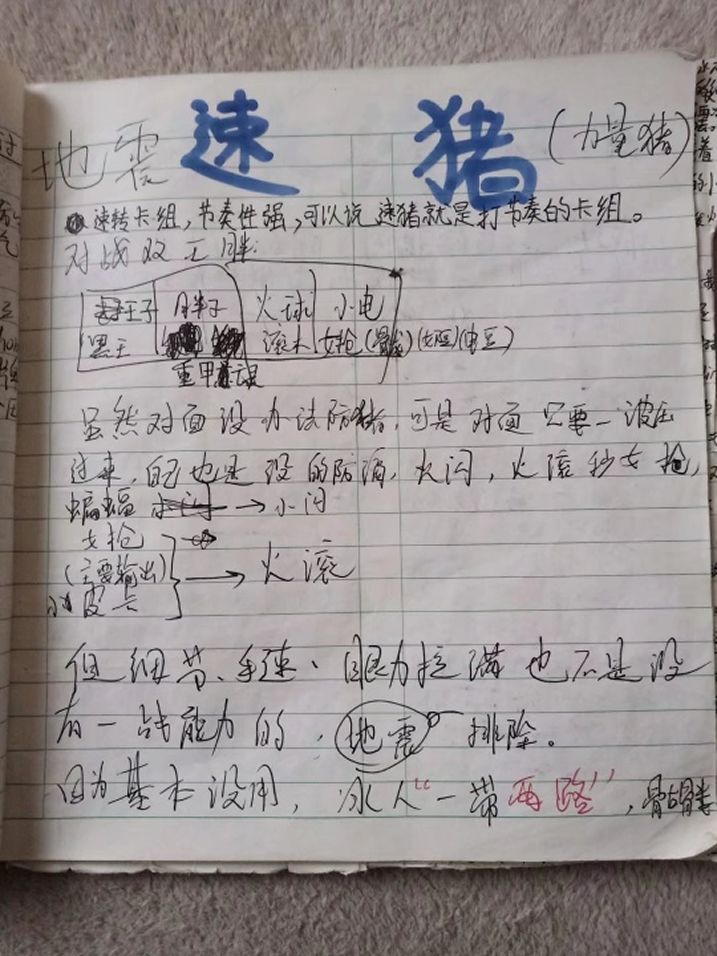 地震 速 猪 (力量猪)
速转卡组，节奏性强，可以说 速猪就是打节奏的卡组。
对战双王胖:
王子 胖子 火球 小电
黑王 滚木 女枪(骷髅)(女巫)(电豆)
重甲
虽然对面没办法防猪，可是对面只要一波压
过来，自己也是没的防滴，火闪，火滚秒女枪，
蝙蝠 → 小闪
女枪
(主要输出) → 火滚
小皮卡
但细节、手速、眼力拉满也不是没
有一战能力的，地震 排除。
因为基本没用，冰人“一带两路”，骷髅